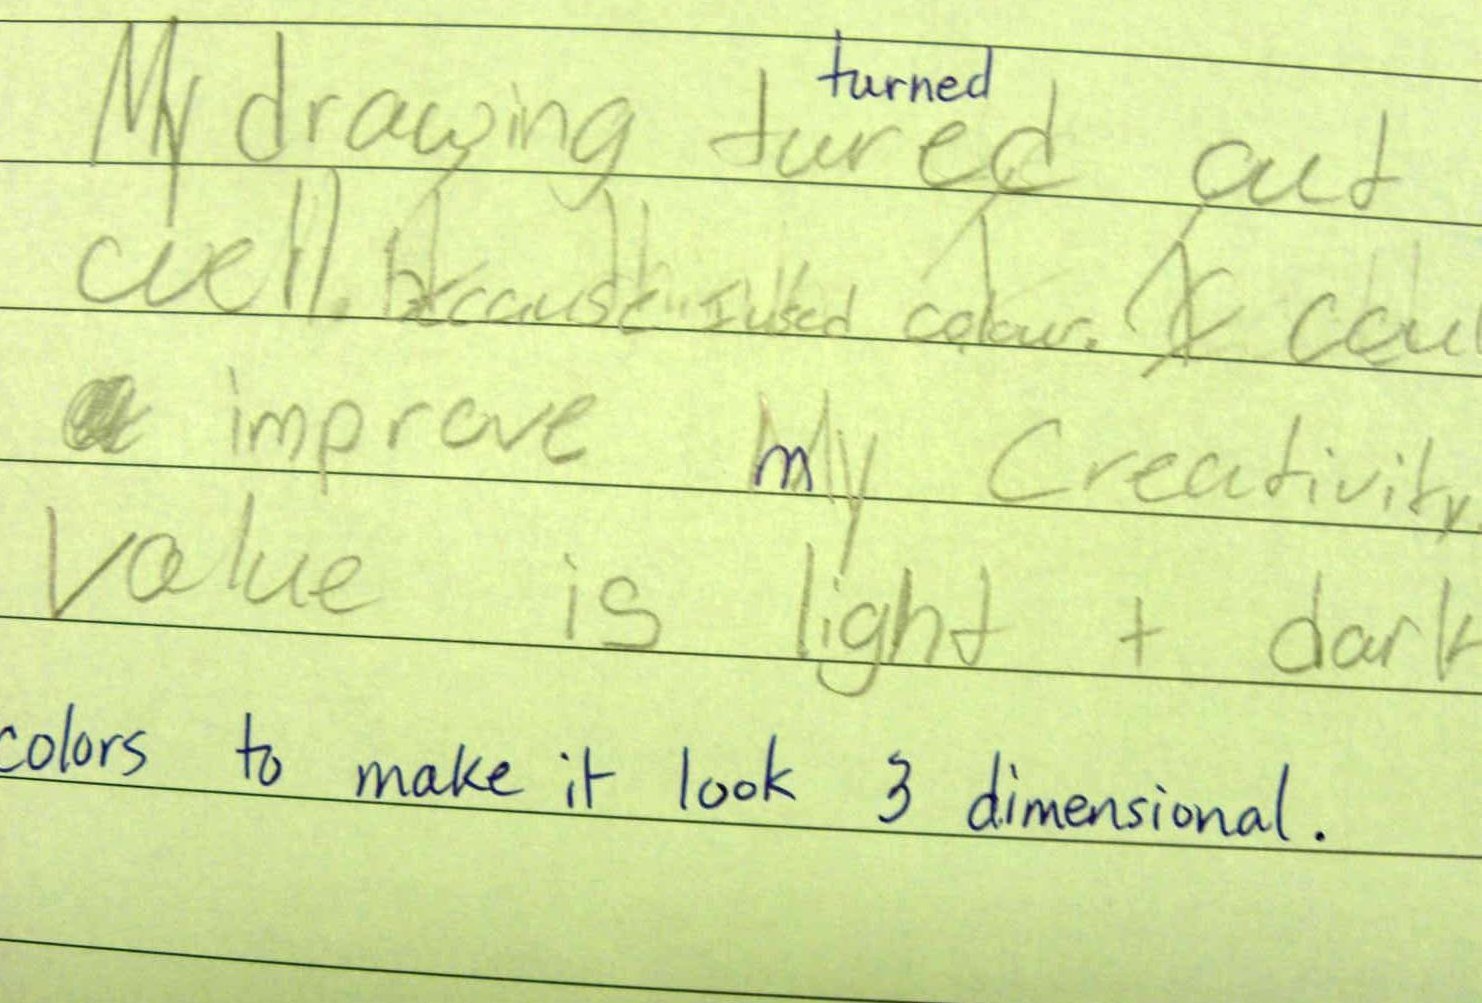 turned
My drawing tured out
well, because I used colour. I coul
improve my Creativity
Value is light + dark
colors to make it look 3 dimensional.